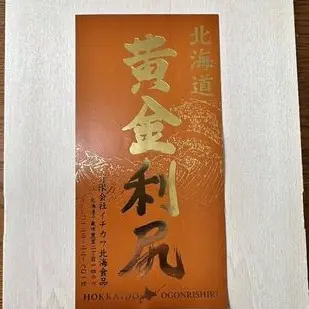 北海道
黄金利尻
有限会社イチカワ北海食品
HOKKAIDO OGONRISHIRI